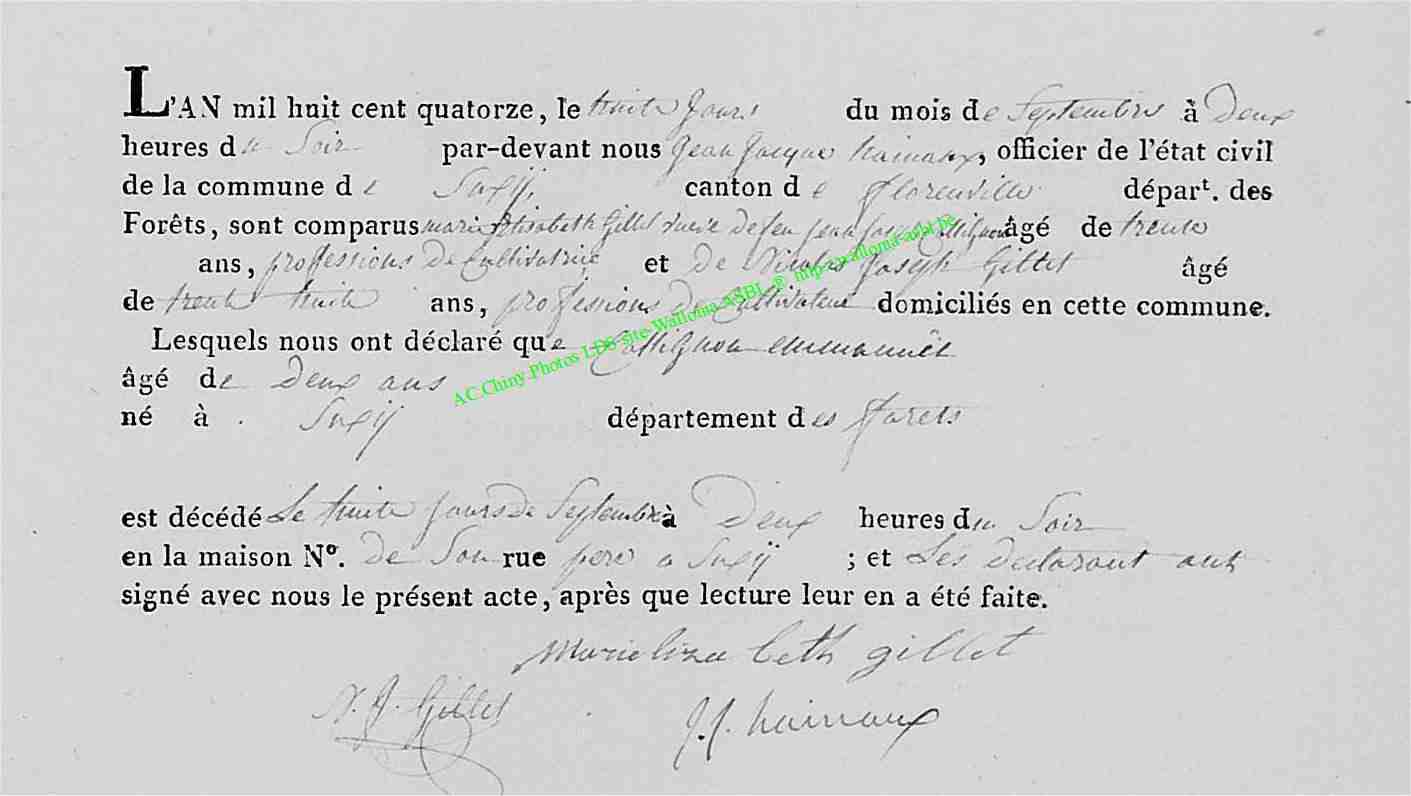 L'AN mil huit cent quatorze, le huite Jours du mois de Septembre à Deux
heures du Soir par-devant nous Jean Jacque hainaux, officier de l'état civil
de la commune de Suxÿ, canton de florenville départ. des
Forêts, sont comparus marie Elisabeth Gillet veuve de feu jean âgé de trente
ans, professions de Cultivatrice et de Nicolas Joseph Gillet âgé
de trente huite ans, professions de Cultivateur domiciliés en cette commune.
Lesquels nous ont déclaré que Collignon emmanuel
âgé de Deux ans
né à Suxÿ département des forets
est décédé Le huite jours de Septembre à Deux heures du Soir
en la maison Nº. de Son rue pere a Suxÿ ; et Les declarant ont
signé avec nous le présent acte, après que lecture leur en a été faite.
Marieliza beth gillet
N. J. Gillet J. J. hainaux
AC Chiny Photos LDS site Wallonia ASBL © http:wallonia-asbl.be